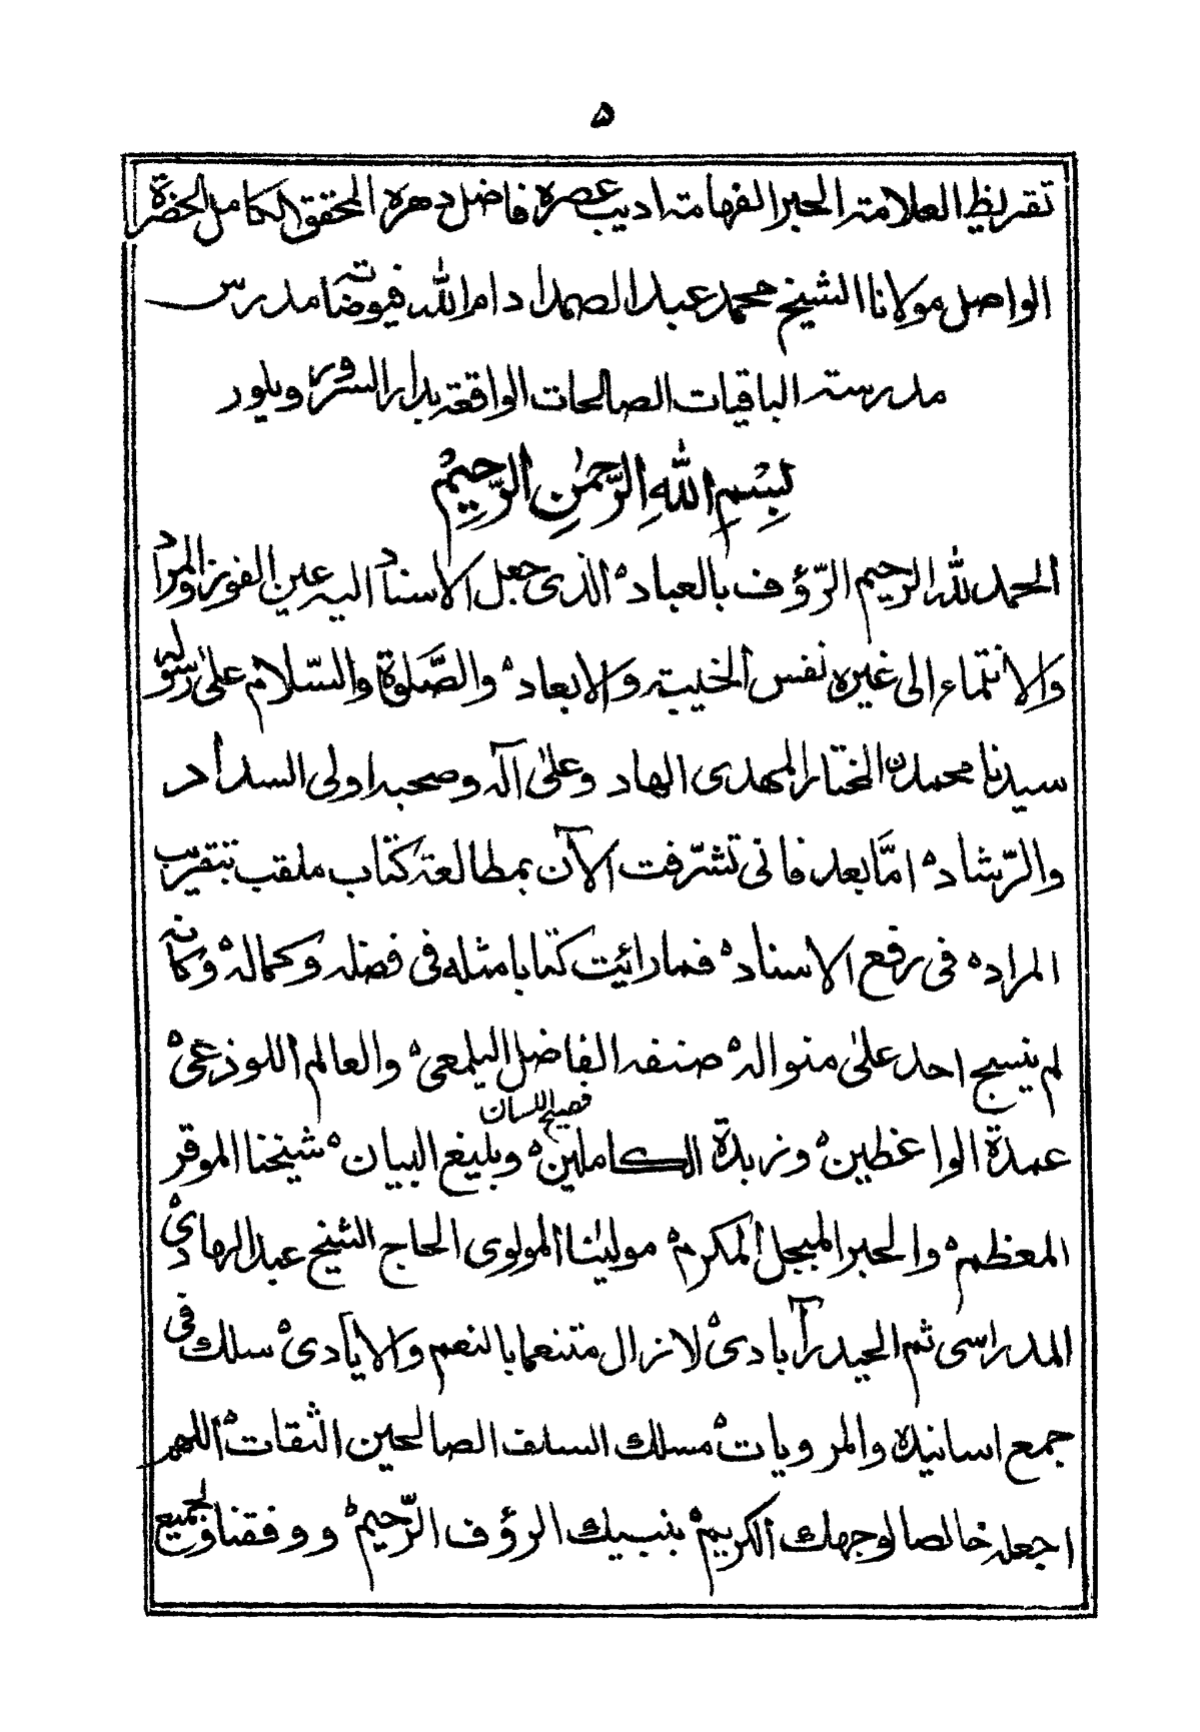 ۵
تقريظ العلامة الحبر الفهامة اديب عصره فاضل دهره المحقق الكامل الحضرة
الواصل مولانا الشيخ محمد عبد الصمد ادام الله فيوضاته مدرس
مدرسة الباقيات الصالحات الواقعة بدار السرور ويلور
بِسْمِ اللهِ الرَّحمٰنِ الرَّحِيْمِ
الحمد لله الرحيم الرّؤف بالعباد ه الذى جعل الاسناد اليه عين الفوز والمراد
والانتماء الى غيره نفس الخيبة والابعاد ه والصَّلٰوة والسّلام علىٰ رسوله
سيدنا محمدن المختار المهدى الهاد وعلىٰ آله وصحبه اولى السداد
والرّشاد ه امَّا بعد فانى تشرّفت الآن بمطالعة كتاب ملقب بتقريب
المراد ه فى رفع الاسناد ه فما رائيت كتابا مثله فى فضله وكماله ه وكانه
لم ينسج احد علىٰ منواله ه صنفه الفاضل اليلمعى ه والعالم اللوذعى ه
فصيح اللسان
عمدة الواعظين ه وزبدة الكاملين ه وبليغ البيان ه شيخنا الموقر
المعظم ه والحبر المبجل المكرم ه مولينا المولوى الحاج الشيخ عبد الهادى ه
المدراسى ثم الحيدرآبادى ه لازال متنعما بالنعم والايادى ه سلك فى
جمع اسانيده والمرويات ه مسلك السلف الصالحين الثقات ه اللهم
اجعله خالصا لوجهك الكريم ه بنبيك الرؤف الرّحيم ه ووفقنا وجميع